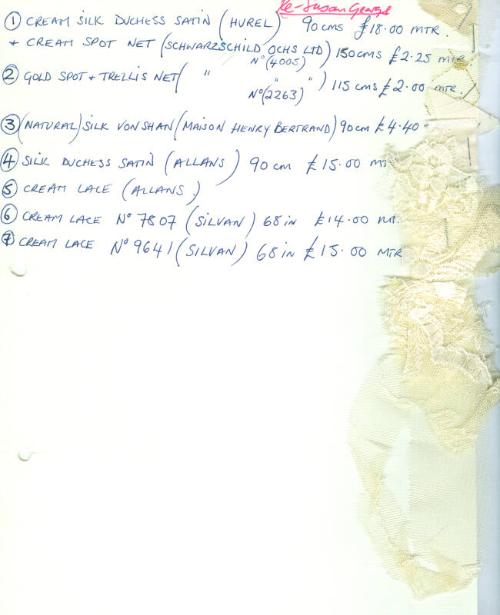 Re-Susan George
① CREAM SILK DUCHESS SATIN (HUREL) 90cms £18.00 MTR.
+ CREAM SPOT NET (SCHWARZSCHILD OCHS LTD) 150cms £2.25 mtr
Nº(4005)
② GOLD SPOT + TRELLIS NET ( " " " ) 115 cms £2.00 MTR.
Nº(2263)
③ (NATURAL) SILK VONSHAN (MAISON HENRY BERTRAND) 90cm £4.40
④ SILK DUCHESS SATIN (ALLANS) 90 cm £15.00 MT
⑤ CREAM LACE (ALLANS)
⑥ CREAM LACE Nº 7807 (SILVAN) 68 in £14.00 MT.
⑦ CREAM LACE Nº 9641 (SILVAN) 68 in £15.00 MTR